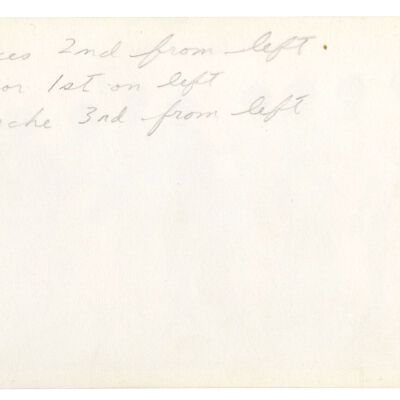 ces 2nd from left.
or 1st on left
che 3rd from left